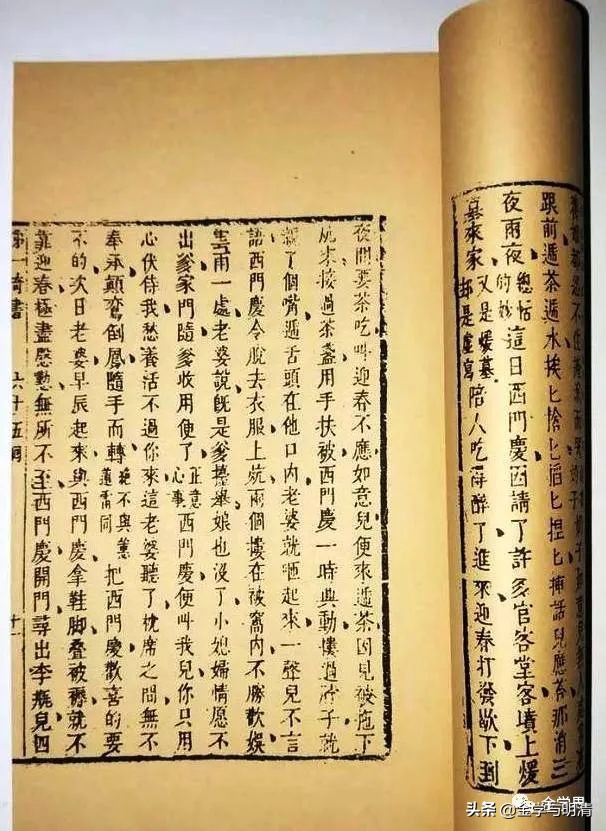 跟前遞茶遞水挨匕搶匕掐匕捏匕插話兒應答那消三
夜兩夜 總帖的妙 這日西門慶因請了許多官客堂客墳上煖
墓來家 又是煖墓却是虛寫 陪人吃得醉了進來迎春打發歇下到
夜間要茶吃叫迎春不應如意兒便來遞茶因見被拖下
炕來接過茶盞用手扶被西門慶一時興動摟過脖子就
親了個嘴遞舌頭在他口內老婆就咂起來一聲兒不言
語西門慶令脫去衣服上炕兩個摟在被窩內不勝歡娛
雲雨一處老婆說既是爹擡舉娘也沒了小媳婦情愿不
出爹家門隨爹收用便了 正意心事 西門慶便叫我兒你只用
心伏侍我愁養活不過你來這老婆聽了枕席之間無不
奉承顛鸞倒鳳隨手而轉 絕不與蕙蓮雷同 把西門慶歡喜的要
不的次日老婆早辰起來與西門慶拿鞋脚叠被褥就不
靠迎春極盡慇懃無所不至西門慶開門尋出李瓶兒四
第一奇書 六十五囘 十一
金學界
头条 @金学与明清